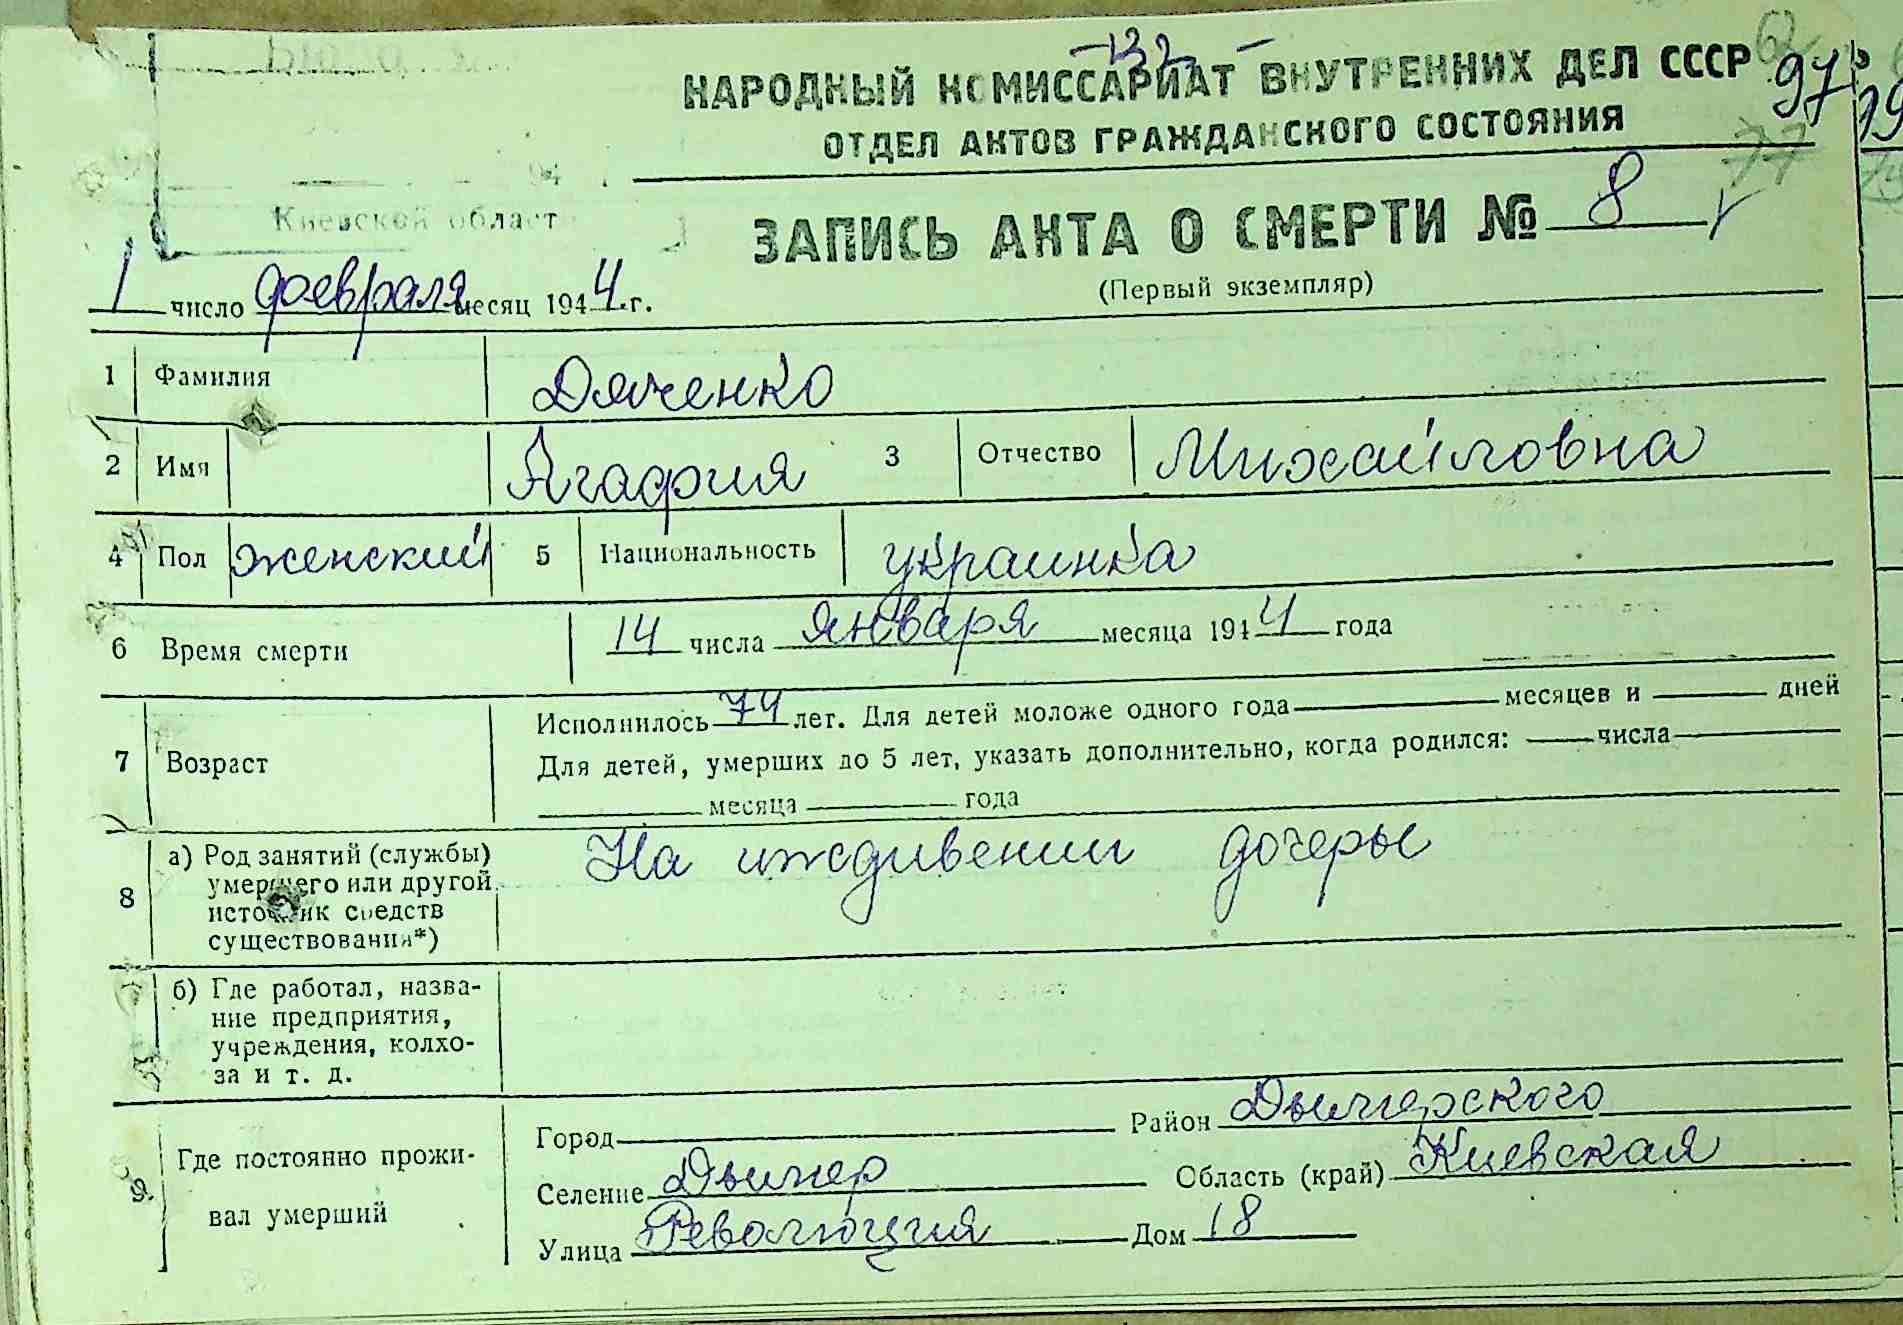 -132-
НАРОДНЫЙ КОМИССАРИАТ ВНУТРЕННИХ ДЕЛ СССР
97
ОТДЕЛ АКТОВ ГРАЖДАНСКОГО СОСТОЯНИЯ
77
Киевской област
ЗАПИСЬ АКТА О СМЕРТИ № 8
(Первый экземпляр)
1 число февраля месяц 1944 г.
1 Фамилия Дяченко
2 Имя Агафия 3 Отчество Михайловна
4 Пол женский 5 Национальность украинка
6 Время смерти 14 числа января месяца 1944 года
Исполнилось 74 лет. Для детей моложе одного года месяцев и дней
7 Возраст Для детей, умерших до 5 лет, указать дополнительно, когда родился: числа
месяца года
8 а) Род занятий (службы) На иждивении дочеры
умершего или другой
источник средств
существования*)
б) Где работал, назва-
ние предприятия,
учреждения, колхо-
за и т. д.
9. Где постоянно прожи-
вал умерший
Город Район Дымерского
Селение Дымер Область (край) Киевская
Улица Революция Дом 18